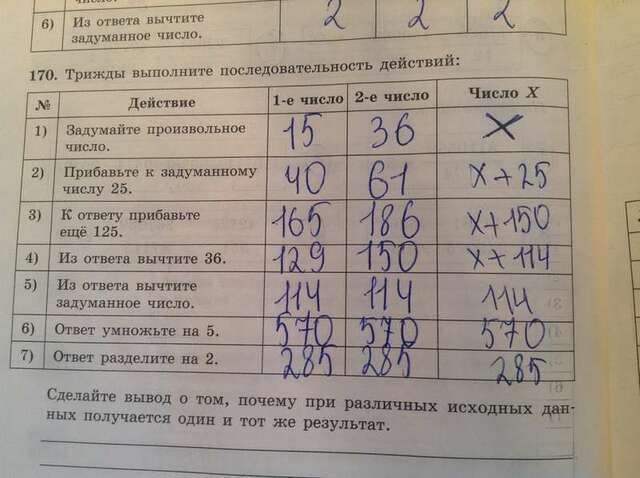 число.
6) Из ответа вычтите 2 2 2
задуманное число.
170. Трижды выполните последовательность действий:
№ Действие 1-е число 2-е число Число X
1) Задумайте произвольное 15 36 X
число.
2) Прибавьте к задуманному 40 61 X+25
числу 25.
3) К ответу прибавьте 165 186 X+150
ещё 125.
4) Из ответа вычтите 36. 129 150 X+114
5) Из ответа вычтите 114 114 114
задуманное число.
6) Ответ умножьте на 5. 570 570 570
7) Ответ разделите на 2. 285 285 285
Сделайте вывод о том, почему при различных исходных дан-
ных получается один и тот же результат.